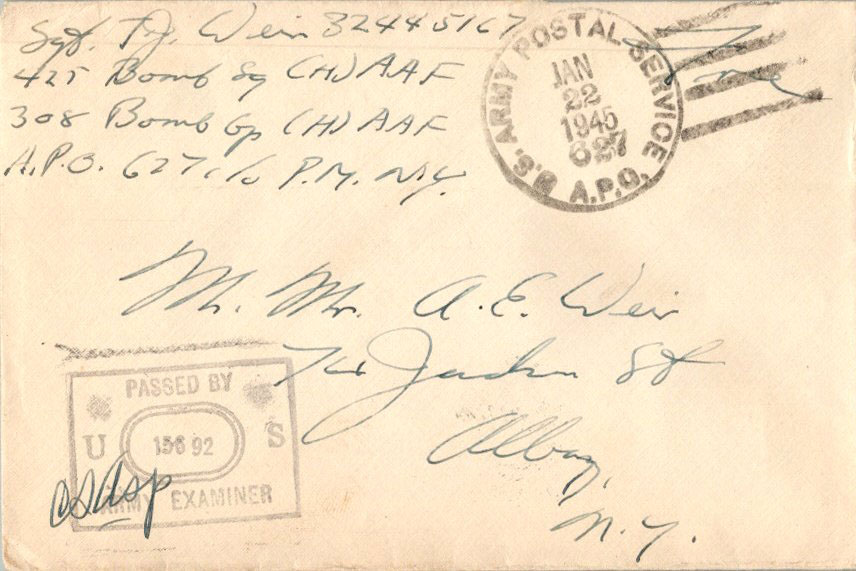 Sgt. T.J. Weir 32445167
425 Bomb Sq (H) AAF
308 Bomb Gp (H) AAF
A.P.O. 627 c/o P.M. N.Y.
U.S. ARMY POSTAL SERVICE
JAN
22
1945
627
A.P.O.
Mr. Mrs. A. E. Weir
St
Albany,
N.Y.
PASSED BY
U 15692 S
ARMY EXAMINER